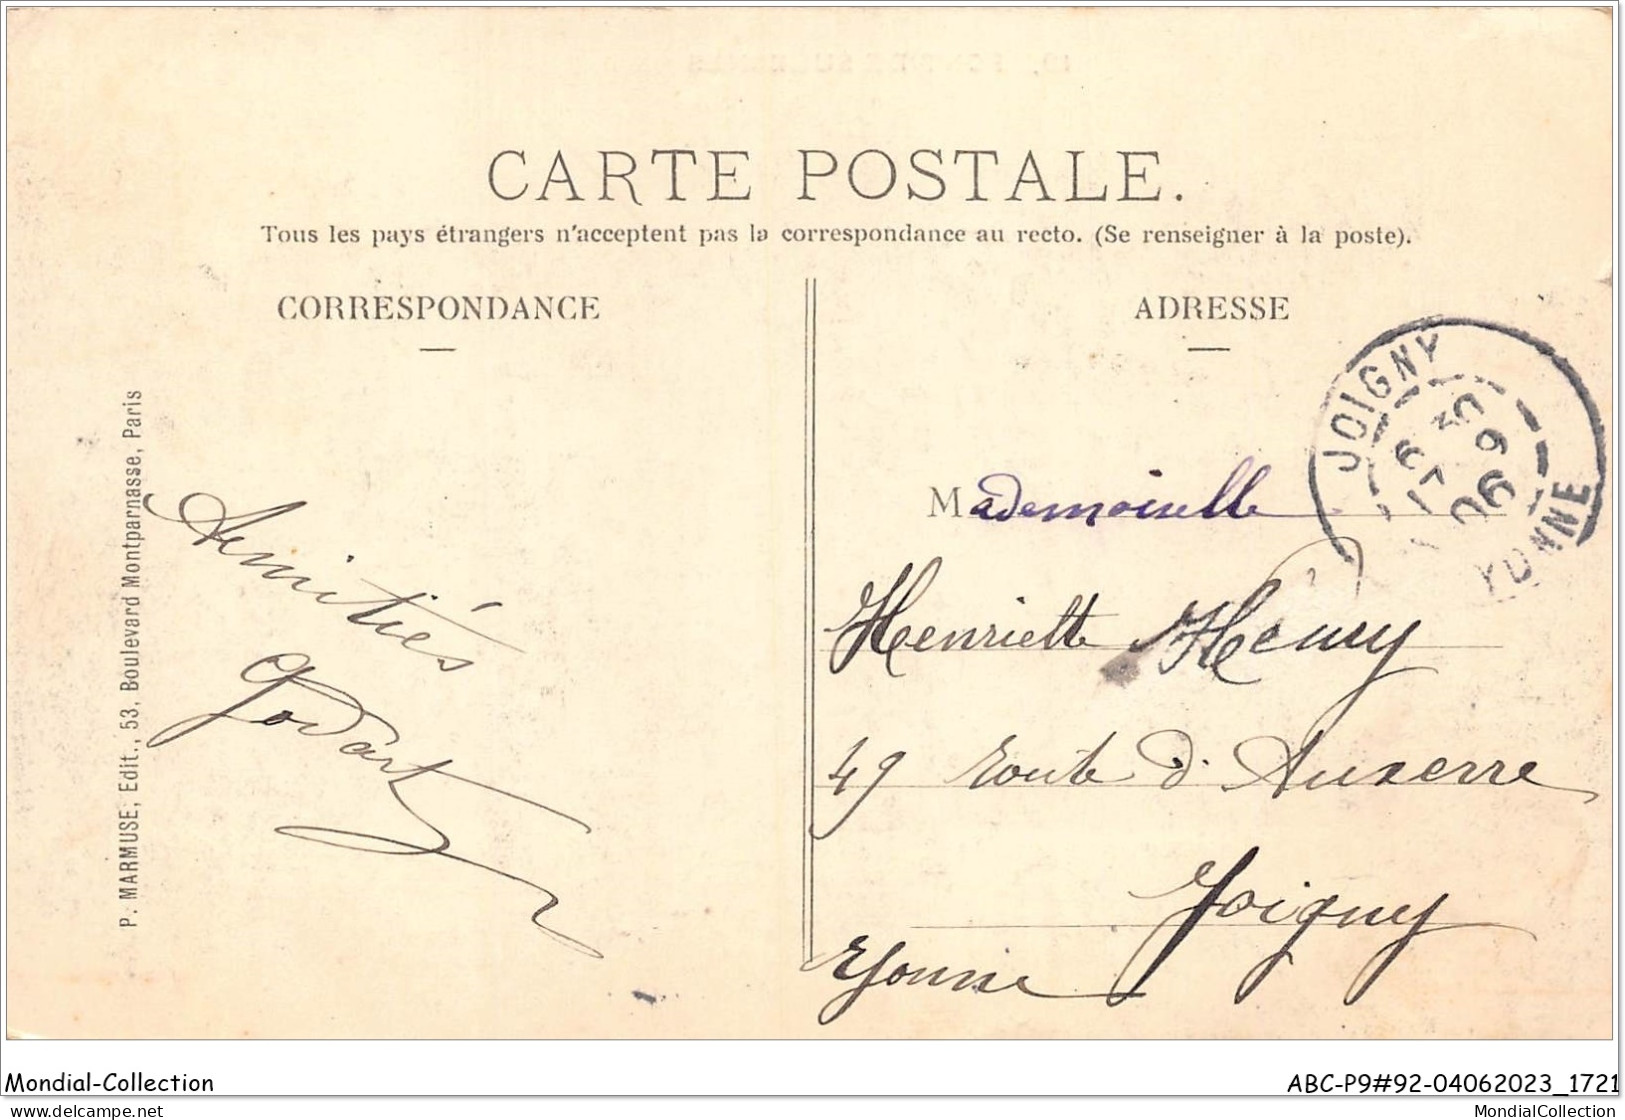 CARTE POSTALE.
Tous les pays étrangers n'acceptent pas la correspondance au recto. (Se renseigner à la poste).
CORRESPONDANCE
ADRESSE
P. MARMUSE, Edit., 53, Boulevard Montparnasse, Paris
Amitiés
Godart
JOIGNY
YONNE
Mademoiselle
Henriette Henry
49 route d'Auxerre
Joigny
Yonne
Mondial-Collection
ABC-P9#92-04062023_1721
delcampe.net
MondialCollection